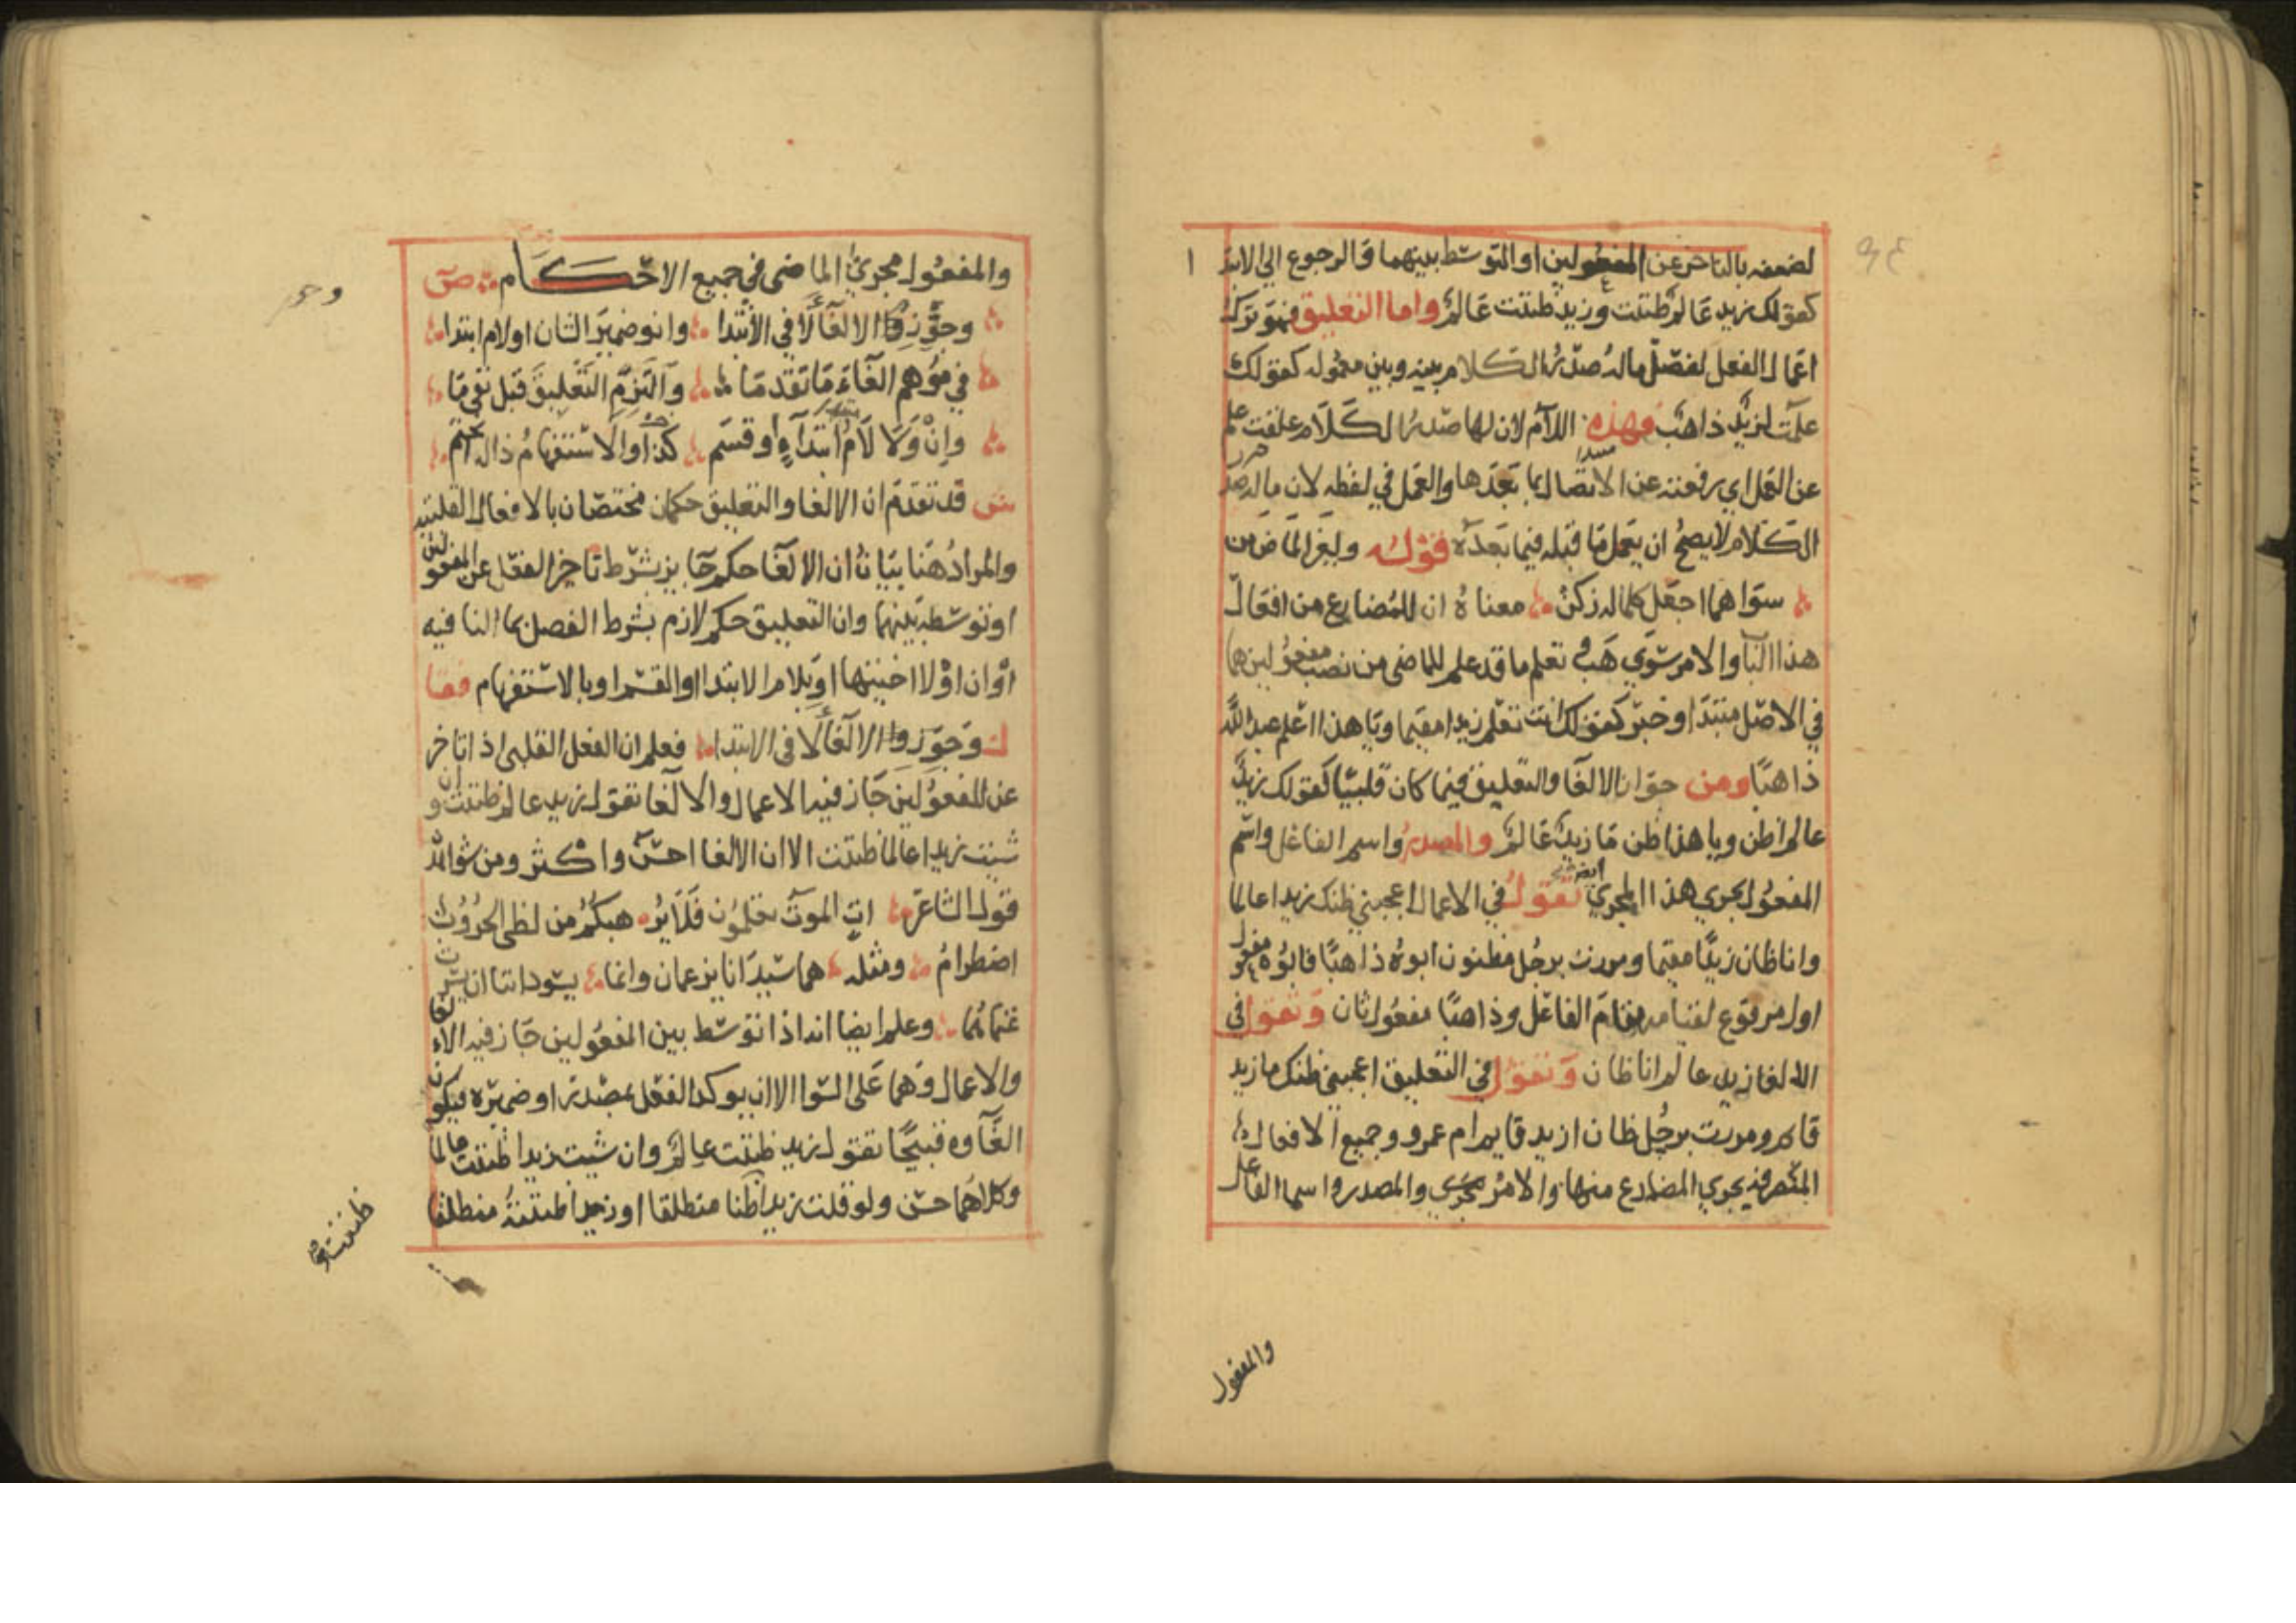 لضعفه بالتاخر عن المفعولين او التوسط بينهما والرجوع الي الابتدا
كقولك زيد عالم ظننت وزيد ظننت عالم واما التعليق فهو ترك
اعمال الفعل لفصل ماله صدر الكلام بينه وبين معموله كقولك
علمت لزيد ذاهب فهذه اللام لان لها صدر الكلام علقت علم
عن العمل اي رفعته عن الاتصال بما بعدها والعمل في لفظه لان ماله صدر
الكلام لا يصح ان يعمل ما قبله فيما بعده قوله ولغير الماض من
سواهما اجعل كلما له زكن معناه ان للمضارع من افعال
هذا الباب والامر سوي هب وتعلم ما قد علم للماضي من نصب مفعولين هما
في الاصل مبتدا وخبر كقولك انت تعلم زيدا مقيما ويا هذا اعلم عبد الله
ذاهبا ومن جواز الالغا والتعليق فيما كان قلبيا كقولك زيد
عالم اظن ويا هذا ظن ما زيد عالم والمصدر واسم الفاعل واسم
المفعول يجري هذا المجري ايضا تقول في الاعمال اعجبني ظنك زيدا عالما
وانا ظان زيدا مقيما ومررت برجل مظنون ابوه ذاهبا فابوه مفعول
اول مرفوع لقيامه مقام الفاعل وذاهبا مفعول ثان وتقول في
الالغا زيد عالم انا ظان وتقول في التعليق اعجبني ظنك ما زيد
قام ومررت برجل ظان ازيد قايم ام عمرو وجميع الافعال
المتصرفه يجري المضارع منها والامر مجري والمصدر واسما الفاعل
والمفعول
والمفعول مجري الماضي في جميع الاحكام ص
وجوز الالغا لا في الابتدا وانو ضمير الشان اولام ابتدا
في موهم الغاء ما تقدما والتزم التعليق قبل نفي ما
وان ولا لام ابتداء او قسم كذا والاستفهام ذا له انحتم
ش قد تقدم ان الالغا والتعليق حكمان مختصان بالافعال القلبيه
والمراد هنا بيان ان الالغا حكم جايز بشرط تاخر الفعل عن المفعولين
او توسطه بينهما وان التعليق حكم لازم بشرط الفصل بما النافيه
او ان او لا اختيها او بلام الابتدا او القسم او بالاستفهام فقا
ل وجوزوا الالغا لا في الابتدا فعلم ان الفعل القلبي اذا تاخر
عن المفعولين جاز فيه الاعمال والالغا تقول زيد عالم ظننت وان
شيت زيدا عالما ظننت الا ان الالغا احسن واكثر ومن شواهده
قول الشاعر ات الموت تعلمون فلا يرهبكم من لظى الحروب
اضطرام ومثله هما سيدانا يزعمان وانما يسوداننا ان يسرت
غنماهما وعلم ايضا انه اذا توسط بين المفعولين جاز فيه الالغا
والاعمال وهما على السوا الا ان يوكد الفعل بمصدر او ضميره فيكون
الغاوه قبيحا تقول زيد ظننت عالم وان شيت زيدا ظننت عالما
وكلاهما حسن ولو قلت زيدا ظننت ظنا منطلقا او زيدا ظننته منطلقا